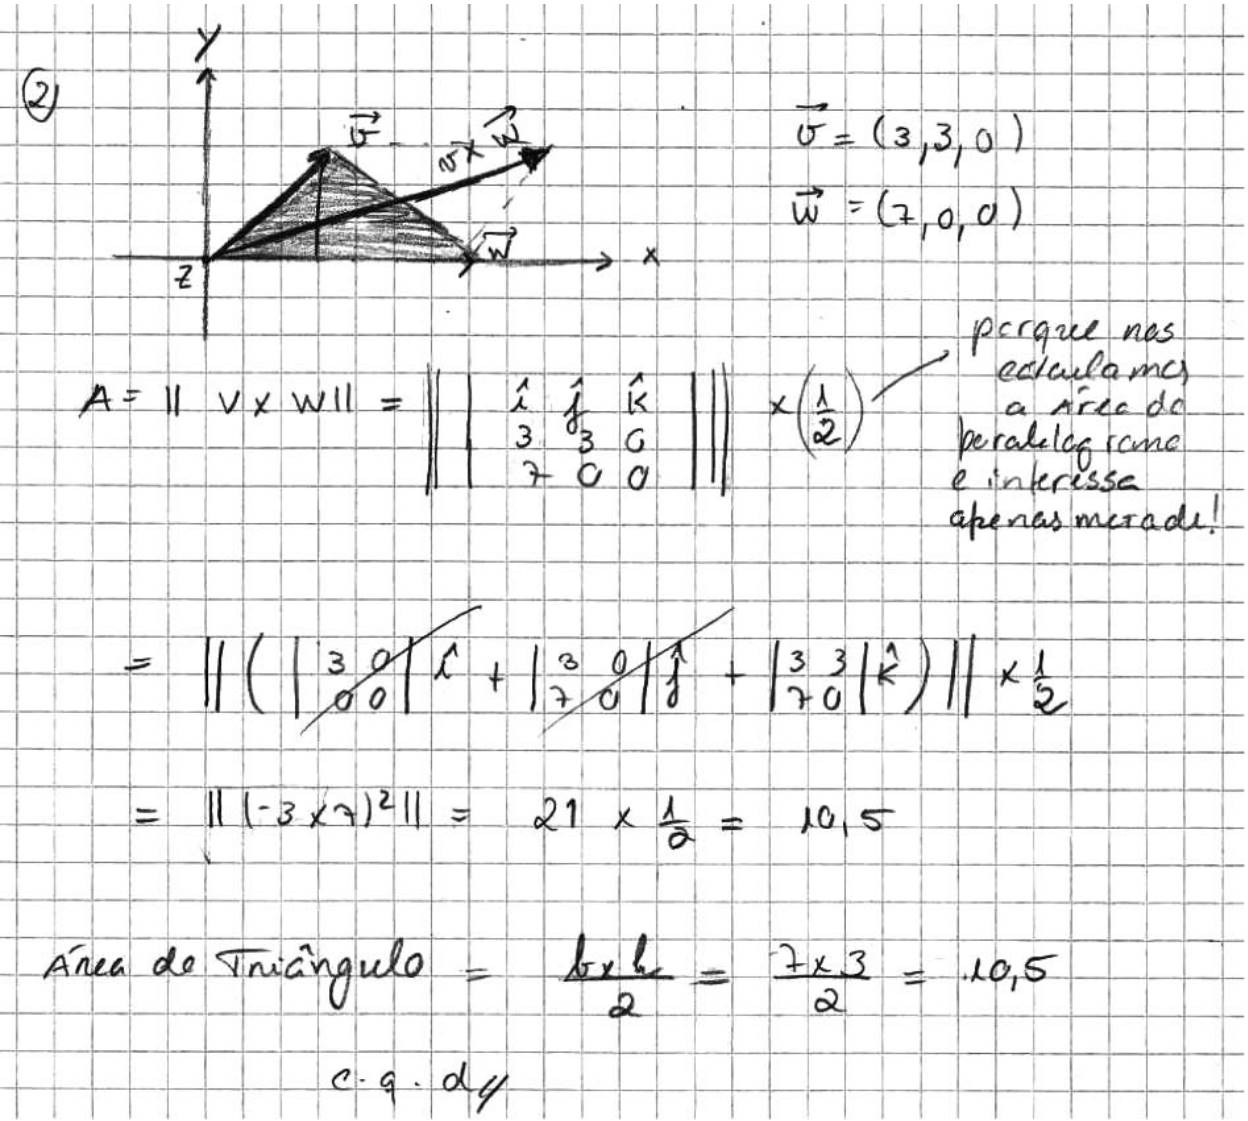 2
Y
v⃗
v × w⃗
w⃗
x
z
v⃗ = (3,3,0)
w⃗ = (7,0,0)
A = || v x w || = || | î ĵ k̂
3 3 0
7 0 0 | || x (1/2)
porque nos
calculamos
a Área do
paralelogramo
e interessa
apenas metade!
= || ( | 3 0 ; 0 0 | î + | 3 0 ; 7 0 | ĵ + | 3 3 ; 7 0 | k̂ ) || x 1/2
= || (-3 x 7)² || = 21 x 1/2 = 10,5
Área do Triângulo = b x h / 2 = 7 x 3 / 2 = 10,5
c.q.d//